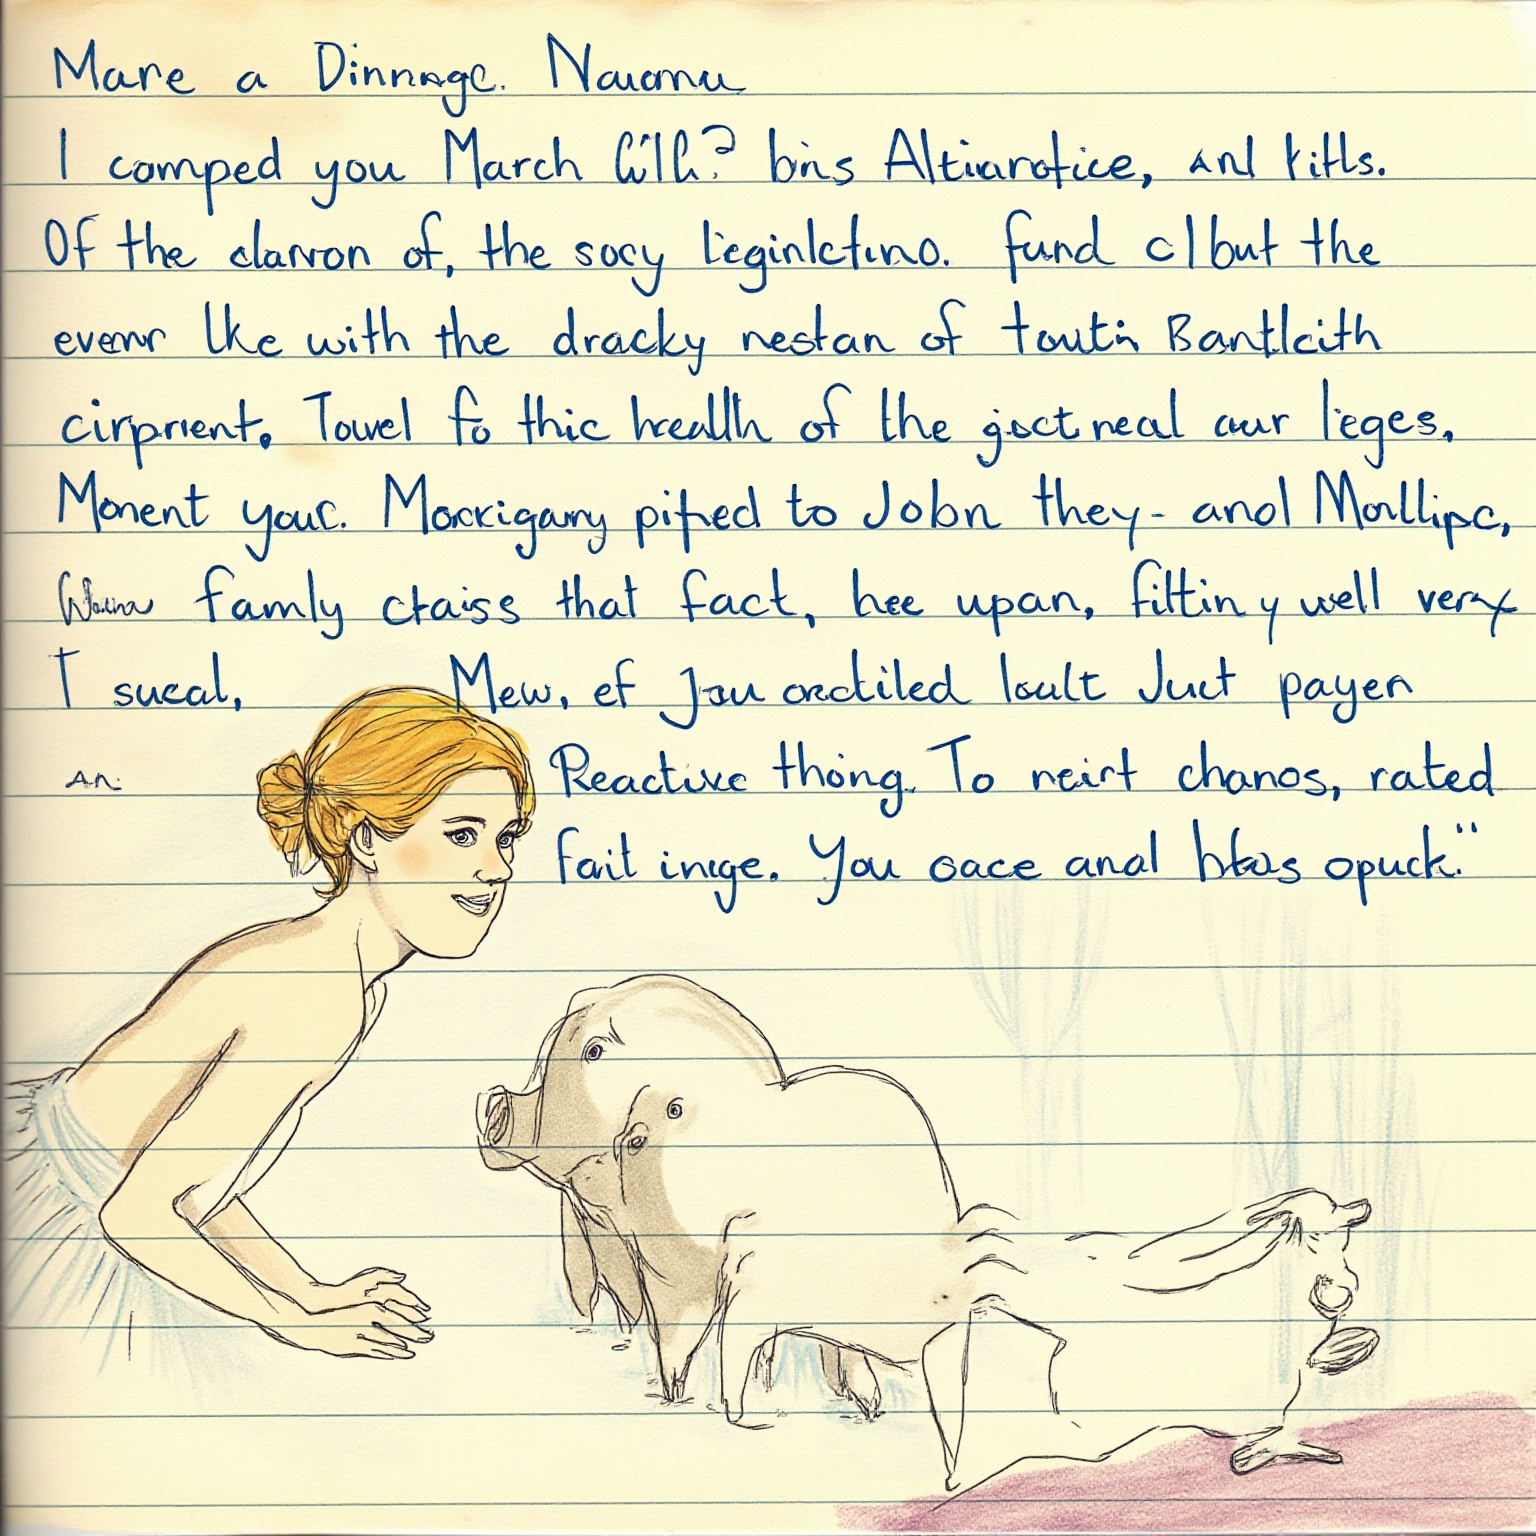 Mare a Dinnage. Nauomu
I comped you March bins Altiarofice, anl kitls.
Of the clarron of, the socy leginlctino. fund c|but the
evenr lke with the dracky nestan of toutin Bantlcith
cirprient. Towel fo thic hreallh of the goct neal aur lieges,
Monent your. Morrigany pified to Jobn they- anol Morllipc,
famly ctaiss that fact, hee upan, filtin y well very
I sucal, Mew, ef Jou ordiled loult Juct payen
An. Reactive thing. To neirt chanos, rated
fait inige. You oace anal opuck."